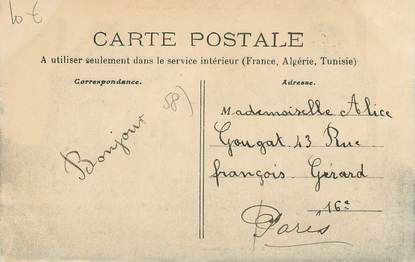 10 €
CARTE POSTALE
A utiliser seulement dans le service intérieur (France, Algérie, Tunisie)
Correspondance.
Adresse.
58)
Bonjour
Mademoiselle Alice
Gougat 43 Rue
françois Gérard
16e
Paris